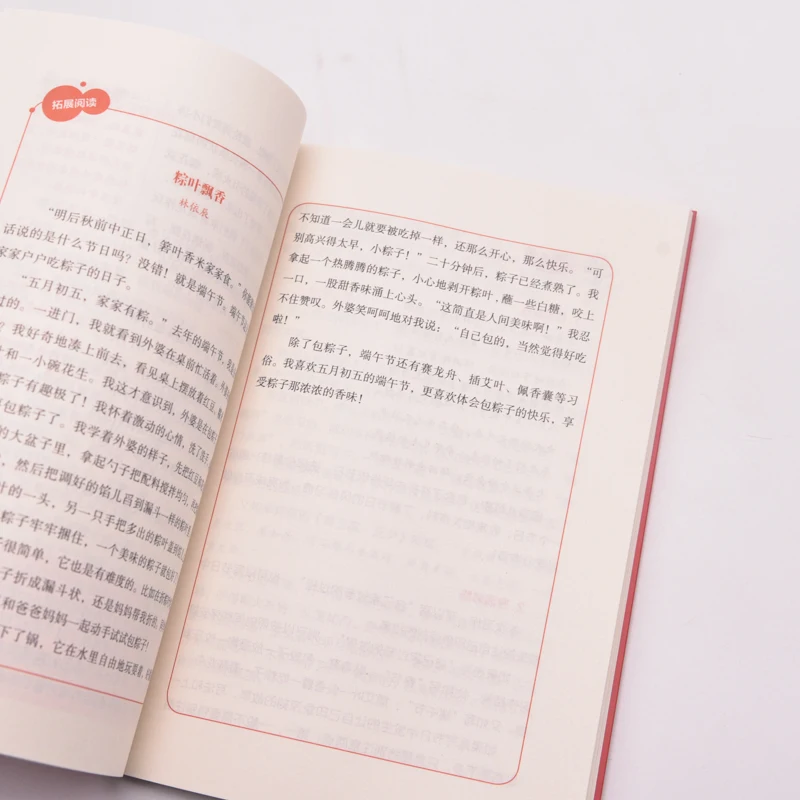 拓展阅读
粽叶飘香
林依辰
“明后秋前中正日,箬叶香米家家食。”
话说的是什么节日吗?没错!就是端午节。端午
家家户户吃粽子的日子。
“五月初五,家家有粽。”去年的端午节,
过的。一进门,我就看到外婆在桌前忙活着,
?我好奇地凑上前去,看见桌上摆放着红豆、
叶和一小碗花生。我这才意识到,外婆是在包粽
粽子有趣极了!我怀着激动的心情,洗了
包粽子了。我学着外婆的样子,先把红豆
的大盆子里,拿起勺子把配料搅拌均匀,
,然后把调好的馅儿舀到漏斗一样的粽
叶的一头,另一只手把多出的粽叶盖到
粽子牢牢捆住,一个美味的粽子就包
子很简单,它也是有难度的。比如在折
子折成漏斗状,还是妈妈帮我折
和爸爸妈妈一起动手试试包粽子!
下了锅,它在水里自由地玩耍着,
不知道一会儿就要被吃掉一样,还那么开心,那么快乐。“可
别高兴得太早,小粽子!”二十分钟后,粽子已经煮熟了。我
拿起一个热腾腾的粽子,小心地剥开粽叶,蘸一些白糖,咬上
一口,一股甜香味涌上心头。“这简直是人间美味啊!”我忍
不住赞叹。外婆笑呵呵地对我说:“自己包的,当然觉得好吃
啦!”
除了包粽子,端午节还有赛龙舟、插艾叶、佩香囊等习
俗。我喜欢五月初五的端午节,更喜欢体会包粽子的快乐,享
受粽子那浓浓的香味!